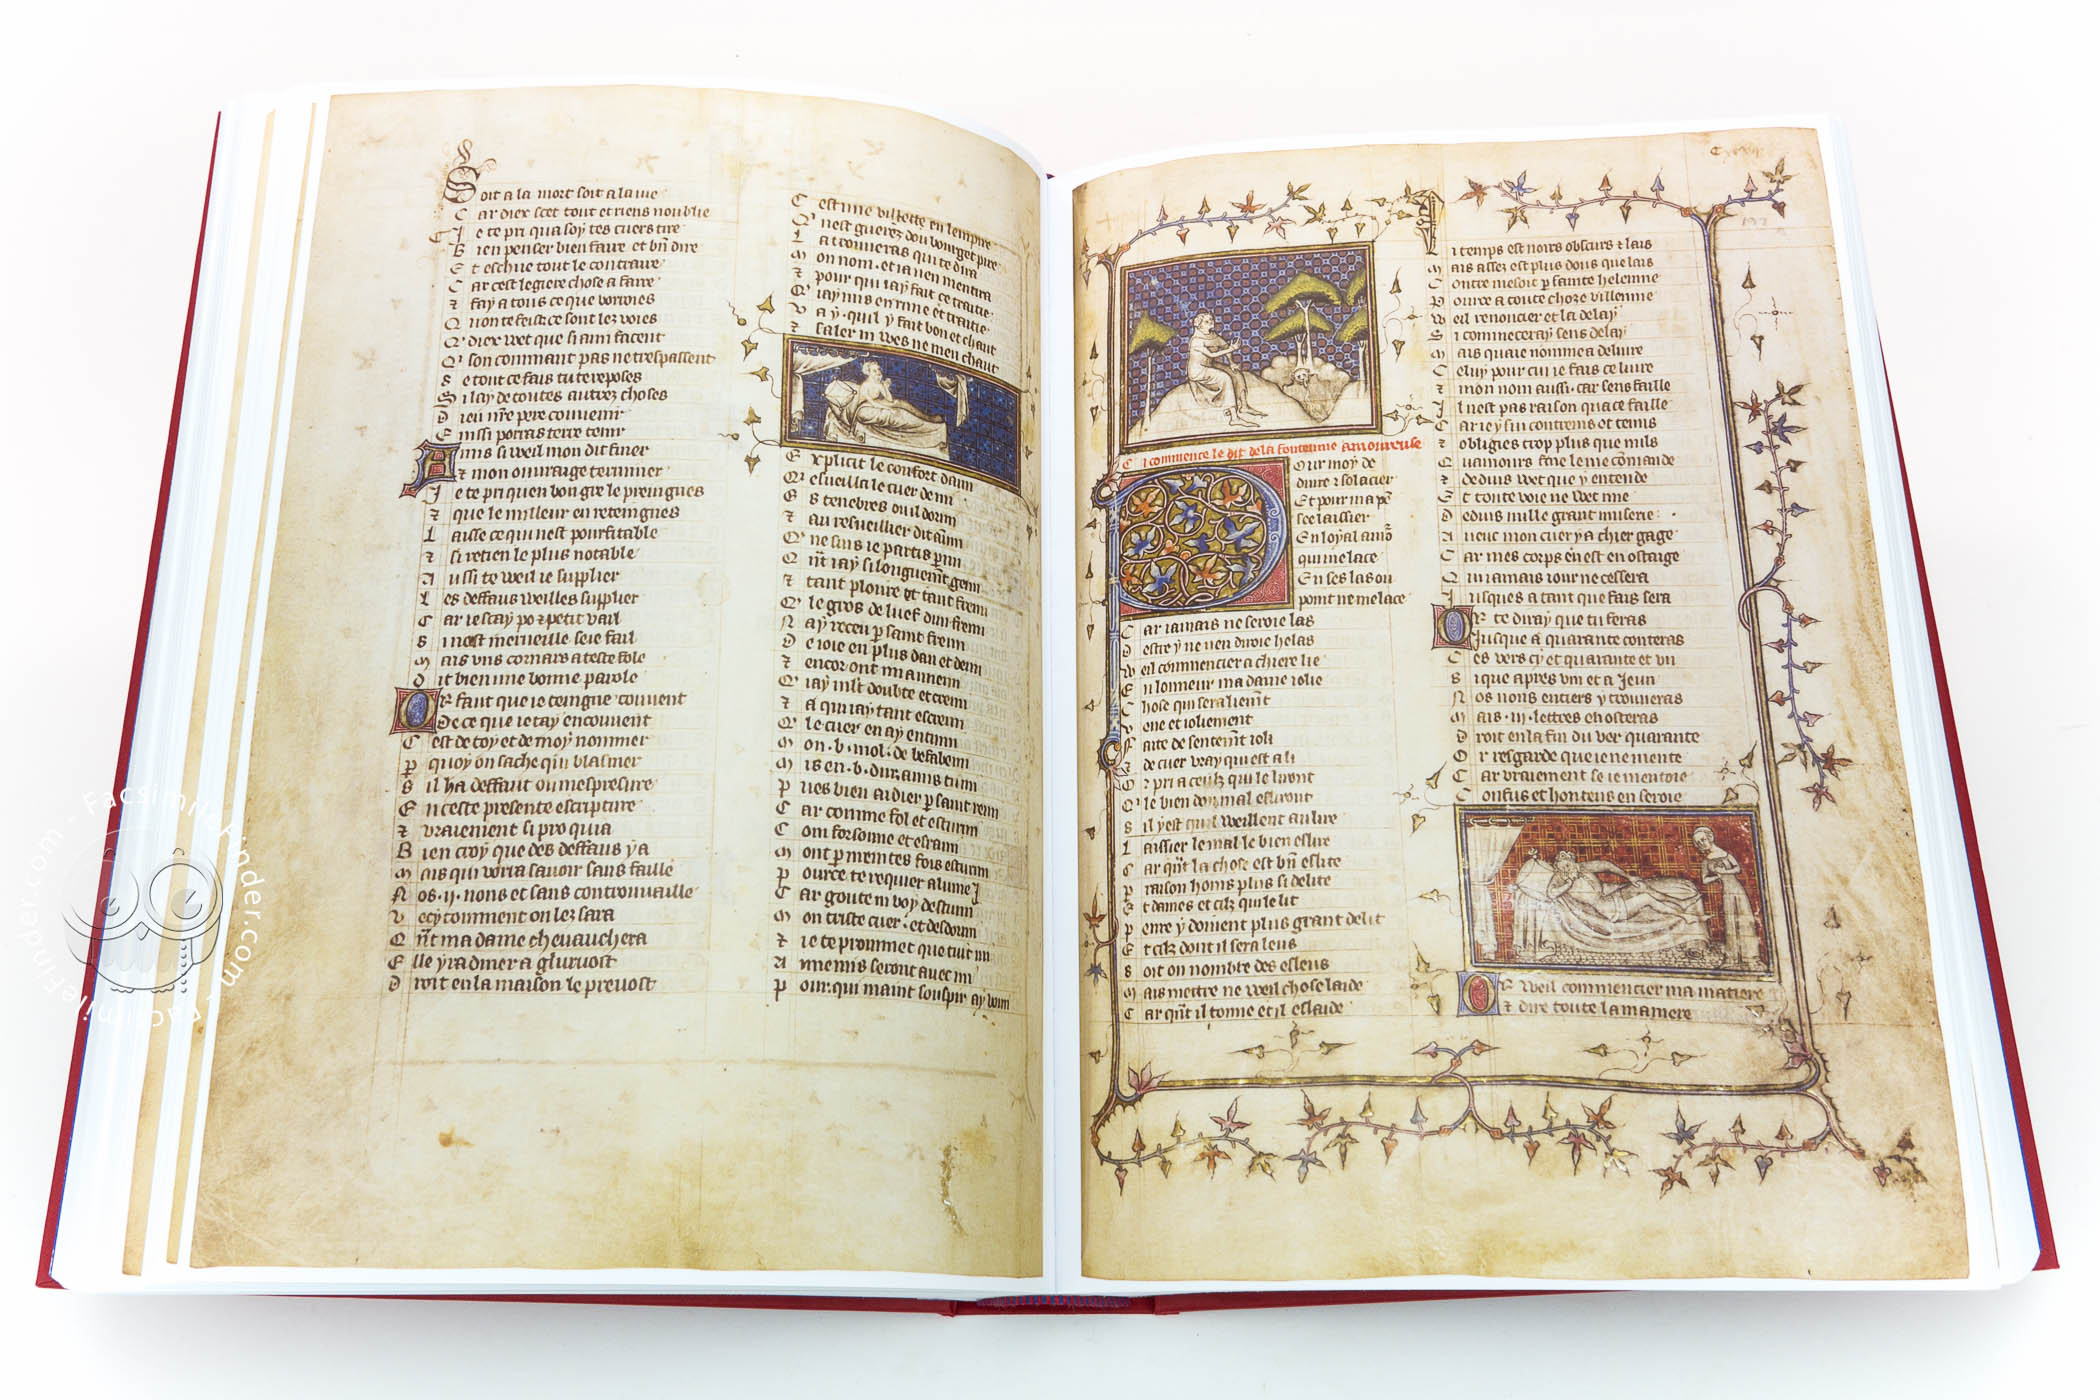 Soit a la mort soit a la vie
Car diex scet tout et riens noublie
Je te pri qua soy tes cuers tire
Bien penser bien faire et bñ dire
Et eschue tout le contraire
Car cest legiere chose a faire
⁊ fay a tous ce que vorroies
Quon te feist ce sont lez voies
Q' diex wet que si ami facent
Q' son commant pas ne trespassent
Se tout ce fais tu te reposes
Si lay de toutes autrez choses
Dieu nr̃e pere couvenir
Einssi porras terre tenir
Amis si weil mon dit finer
Et mon ouuraige terminer
Je te pri quen bon gre le preingnes
⁊ que le milleur en reteingnes
Laisse ce qui nest pourfitable
⁊ si retien le plus notable
Aussi te weil ie supplier
Les deffaus weilles supplier
Car ie scay po ⁊ petit vail
Si nest merueille se ie fail
Mais vns cornars a teste fole
Dit bien une bonne parole
Or faut que ie teingne couuent
De ce que ie tay encouuent
Cest de toy et de moy nommer
Pour quoy on sache qui blasmer
Sil ha deffaut ou mespresure
En ceste presente escripture
⁊ vraiement si pro quia
Bien croy que des deffaus y a
Mais qui vorra sauoir sans faille
Nos .ii. nons et sans controuuaille
Vecy comment on lez sara
Qñt ma dame cheuauchera
Elle yra diner a gluruost
Droit en la maison le preuost
Cest une villette en lempire
Q' nest guerez dou bourget pire
La trouueras qui te dira
Mon nom . et ia nen mentira
⁊ pour qui iay fait ce traitie
Q' iay mis en rime et traitie
Va y . quil y fait bon et chaut
⁊ saler ni wes ne men chaut
Explicit le confort dami
Esueilla le cuer de mi
Es tenebres ou il dormi
⁊ au resueillier dit aimi
Q' ne suis ie partis parmi
Qñt iay si longuemẽt gemi
⁊ tant ploure et tant fremi
Q' le gros de luef dun fremi
Nay receu p saint fremi
De ioie en plus dan et demi
⁊ encor ont mi anemi
Q' iay ml't doubte et cremi
⁊ a qui iay tant escremi
Q' le cuer en ay entumi
Mon .b. mol . de befabemi
Mis en .b. dur. amis tu mi
Pues bien aidier p saint remi
Car comme fol et esturmi
Com forsonne et estraimi
Mont p maintes fois esturmi
Pource te requier alume
Car goute ni voy deſtumi
Mon triste cuer . et desdormi
⁊ ie te prommet que tuit mi
Anemis seront auec mi
Pour qui maint souspir ay vomi
Ci commence le dit de la fonteinne amoureuse
Pour moy de
duire ⁊ solacier
Et pour ma pẽ
see laissier
En loyal amõ
qui me lace
En ses las ou
point ne me lace
Car iamais ne seroie las
Destre y ne nen diroie helas
Weil commencier a chiere lie
En lonneur ma dame iolie
Chose qui sera liemẽt
Veue et ioliement
Faite de sentemẽt ioli
⁊ de cuer vray qui est a li
Or pri a ceulz qui le liront
Q' le bien dou mal esliront
Sil y est quil weillent au lire
Laissier le mal le bien eslire
Car qñt la chose est bñ eslite
Par raison homs plus si delite
Et dames et cilz qui le lit
Penre y doiuent plus grant delit
Et cilz dont il sera leus
Soit ou nombre des esleus
Mais mettre ne weil chose laide
Car qñt il tonne et il eslaide
Li temps est noirs obscurs ⁊ lais
Mais assez est plus dous que lais
Contre mesoit p sainte heleinne
Pource a toute choze villeinne
Weil renoncier et la delay
Si commenceray sens delay
Mais quaie nomme a deliure
Celuy pour cui ie fais ce liure
⁊ mon nom aussi . car sens faille
Il nest pas raison qua ce faille
Car ie y sui contreins et tenus
⁊ obligies trop plus que nuls
Quamours fine le me cõmande
⁊ dedus wet que y entende
Et toute voie ne wet mie
Dedus mille grant miserie :
Aueuc mon cuer y a chier gage
Car mes corps en est en ostaige
Qui iamais iour ne cessera
Jusques a tant que fais sera
Or te diray que tu feras
Jusque a quarante conteras
Ces vers cy et quarante et un
Si que apres vin et a Jeun
Nos nons entiers y trouueras
Mais .iii. lettres en osteras
Droit en la fin du ver quarante
Or resgarde que ie ne mente
Car vraiement se ie mentoie
Confus et honteus en seroie
Or weil commencier ma matiere
⁊ dire toute la maniere
197
FacsimileFinder.com · FacsimileFinder.com · FacsimileFinder.com